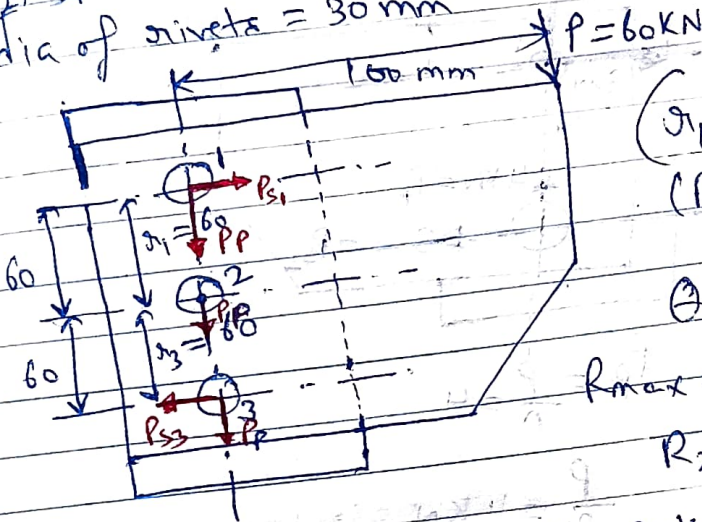 dia of rivets = 30 mm
P = 60KN
100 mm
1
Ps1
r1 = 60
PP
60
2
PP
r3 = 60
60
3
Ps3
PP
(r1
(P
θ
Rmax
R